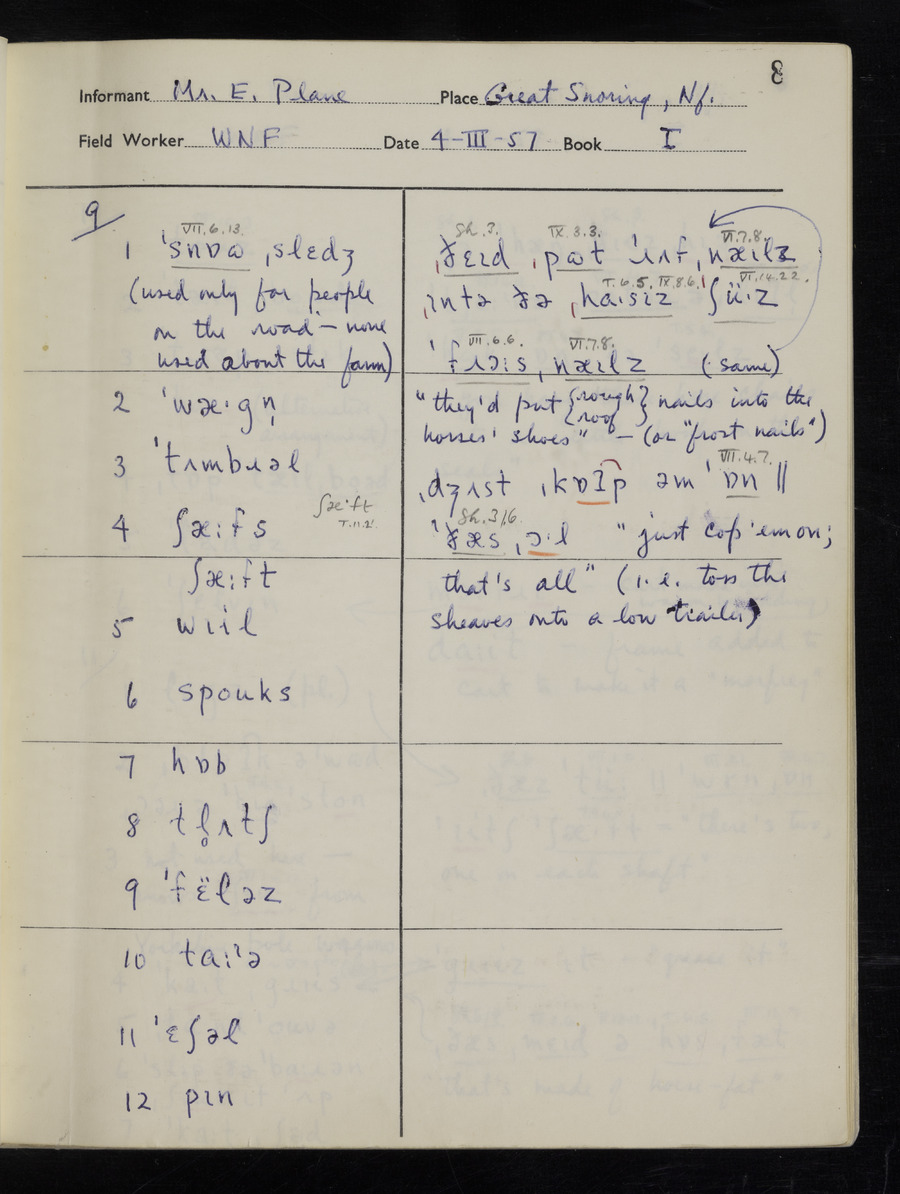 8
Informant Mr. E. Plane Place Great Snoring, Nf.
Field Worker WNF Date 4-III-57 Book I
9
VII.6.13.
1 ˈsnɒω ˌsledʒ
(used only for people
on the road — none
used about the farm)
2 ˈwæ·gn̩
3 ˈtʌmbɹəl
ʃæ·ft
I.11.2.
4 ʃæ:fs
ʃæ:ft
5 wiil
6 spouks
7 hɒb
8 tl̥ʌtʃ
9 ˈfëləz
10 ta:ˈə
11 ˈɛʃəl
12 pɪn
Sh.3. IX.3.3. VI.7.8.
ˌðeɪd ˌpωt ˈɹʌf ˌnæɪlz
I.6.5. IX.8.6. VI.14.22.
ˌɪntə ðə ˌha:sɪz ˈʃü:z
VII.6.6. VI.7.8.
ˈfɹɔis ˌnæɪlz (: same)
"they'd put {rough} {roof} nails into the
horses' shoes" — (or "frost nails")
VII.4.7.
ˌdʒʌst ˌkɒIp əm ˈɒn ||
Sh.3/6.
ˈðæs ˌɔ:l "just cop 'em on;
that's all" (i.e. toss the
sheaves onto a low trailer)